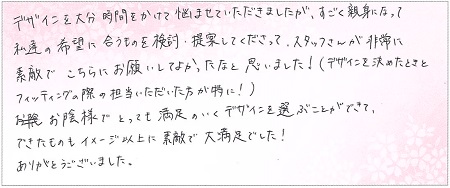 デザインを大分時間をかけて悩ませていただきましたが、すごく親身になって
私達の希望に合うものを検討・提案してくださって、スタッフさんが非常に
素敵でこちらにお願いしてよかったなと思いました!(デザインを決めたときと
フィッティングの際の担当いただいた方が特に!)
お陰様でとっても満足のいくデザインを選ぶことができて、
できたものもイメージ以上に素敵で大満足でした!
ありがとうございました。